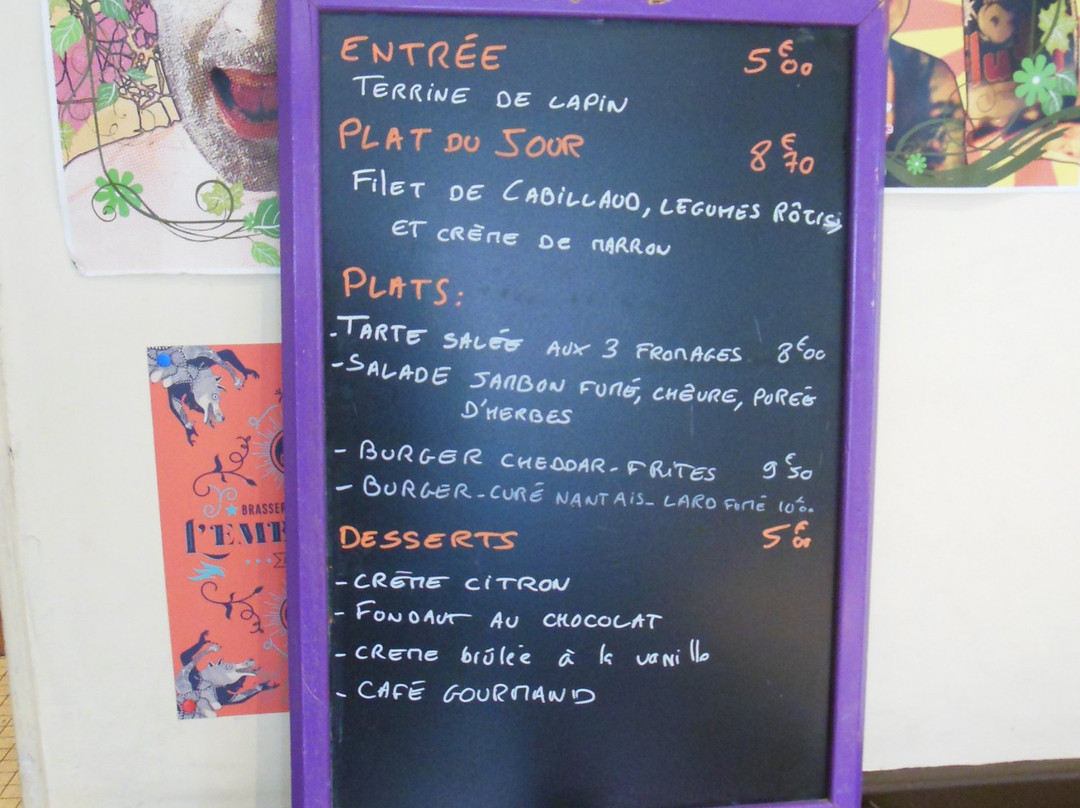 ENTRÉE 5€00
TERRINE DE LAPIN
PLAT DU JOUR 8€70
FILET DE CABILLAUD, LEGUMES RÔTIS
ET CRÈME DE MARRON
PLATS:
-TARTE SALÉE AUX 3 FROMAGES 8€00
-SALADE JAMBON FUMÉ, CHÈVRE, PURÉE
D'HERBES
- BURGER CHEDDAR-FRITES 9€50
- BURGER-CURÉ NANTAIS-LARD FUMÉ 10€00
DESSERTS 5€00
- CRÈME CITRON
- FONDANT AU CHOCOLAT
- CREME brûlée à la vanille
- CAFÉ GOURMAND
BRASSER
L'EM